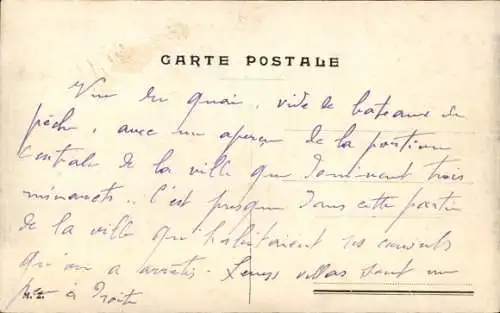 CARTE POSTALE
Vue du quai, vide de bateaux de
pêche, avec un aperçu de la portion
Centrale de la ville que dominent trois
minarets.. C'est presque dans cette partie
de la ville qu'habitaient les
qu'on a arrêtés. Leurs villas sont un
peu à droite